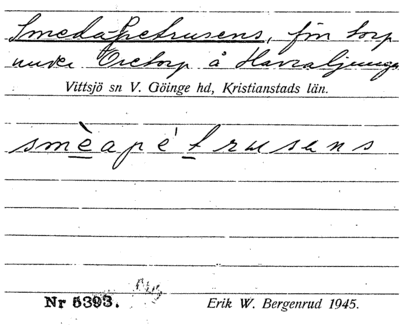 Smedapetrusens, förr torp
under Oretorp å Havraljunga
Vittsjö sn V. Göinge hd, Kristianstads län.
smèapétrusens
Nr 5393.
Erik W. Bergenrud 1945.